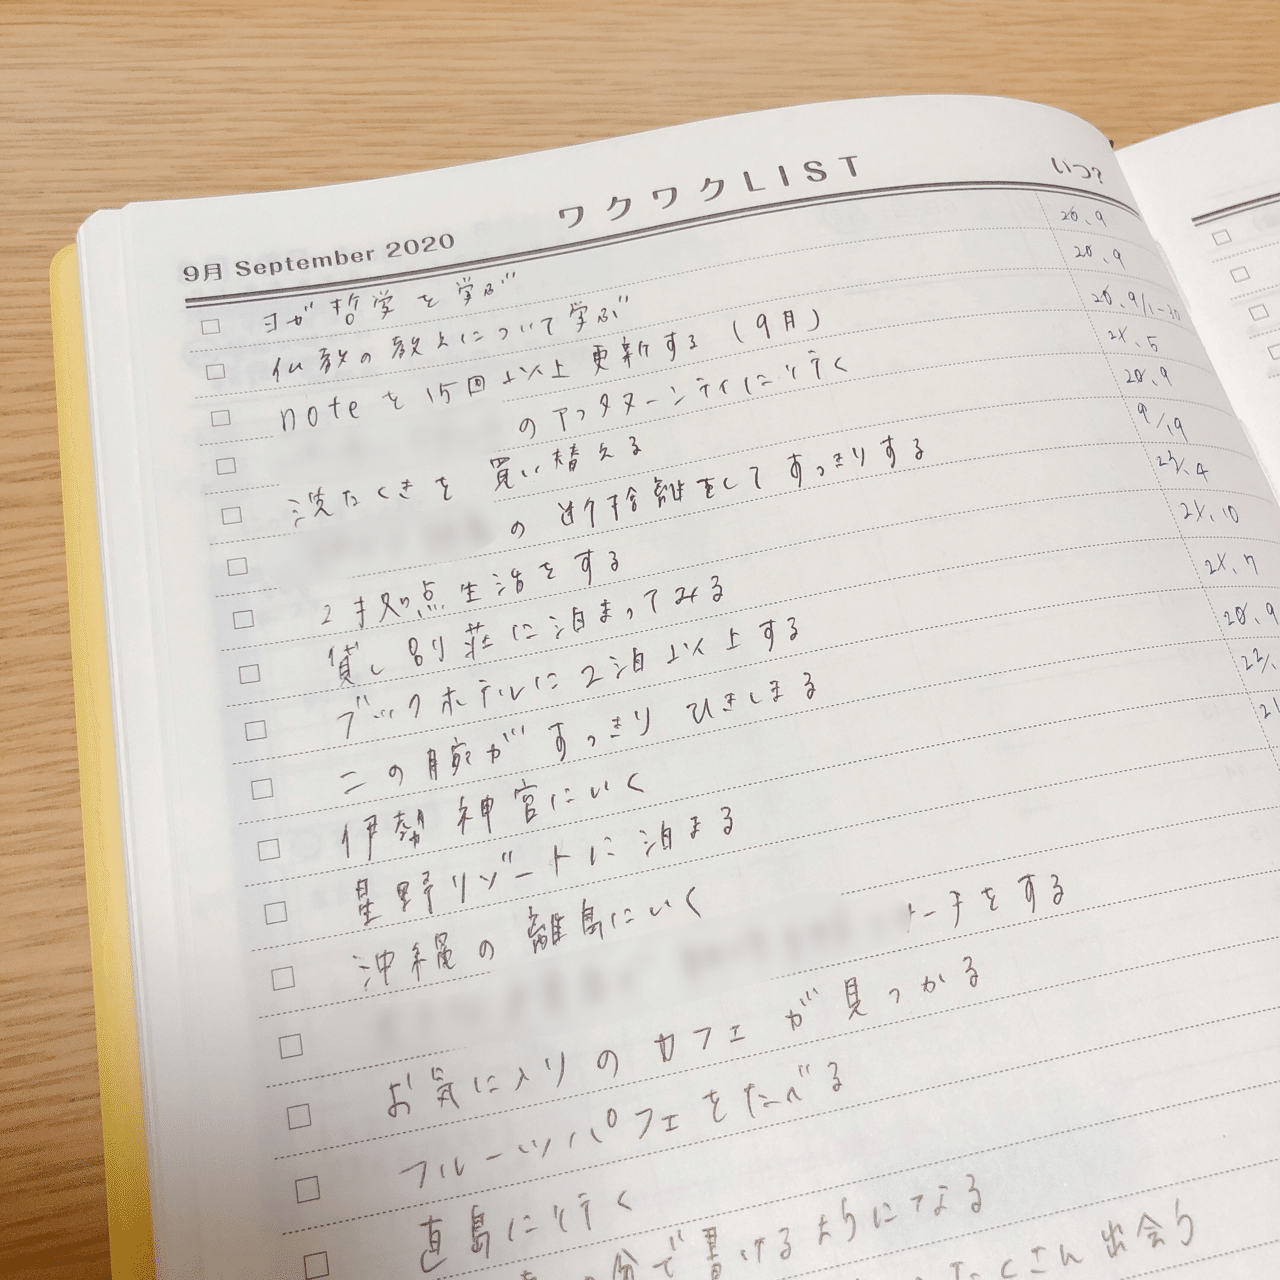 9月 September 2020 ワクワクLIST いつ?
ヨガ哲学を学ぶ 20、9
仏教の教えについて学ぶ 20、9
noteを15回以上更新する(9月) 20、9/1-30
のアフタヌーンティに行く 21、5
洗たくきを買い替える 20、9
の断捨離をしてすっきりする 9/19
2拠点生活をする 23、4
貸し別荘に泊まってみる 21、10
ブックホテルに2泊以上する 21、7
二の腕がすっきりひきしまる 20、9
伊勢神宮にいく 22/、
星野リゾートに泊まる 21
沖縄の離島にいく
ーチをする
お気に入りのカフェが見つかる
フルーツパフェをたべる
直島に行く
分で書けるようになる
たくさん出会う